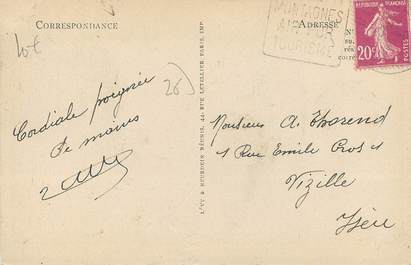 CORRESPONDANCE
ADRESSE
MONTAGNES
TOURISME
20c
Cordiale poignée
de mains
LÉVY & NEURDEIN RÉUNIS, 44, RUE LETELLIER, PARIS, IMP.
Monsieur A. Thorend
1 Rue Emile Gros 1
Vizille
Isère